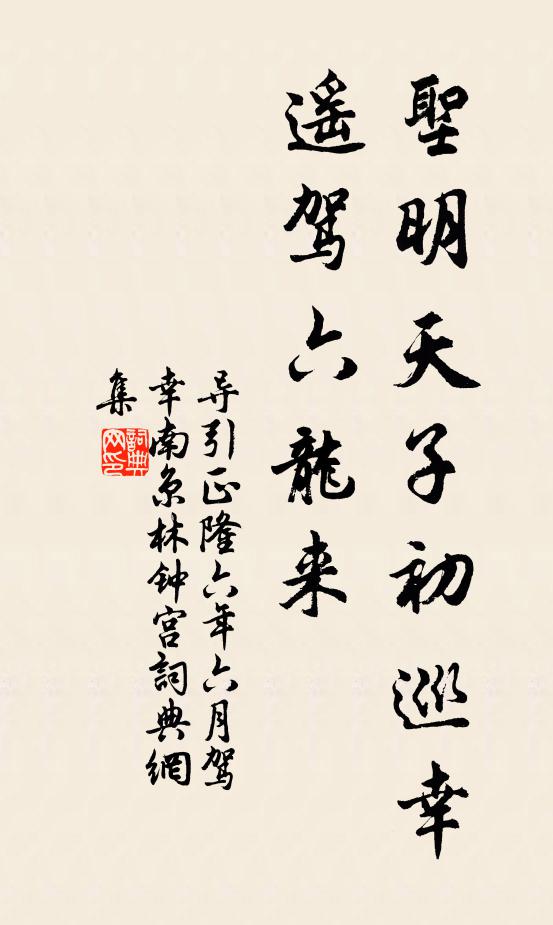 聖明天子初巡幸
遥驾六龍来
导引正隆六年六月驾
幸南京林钟宫詞典網
集
詞典网印